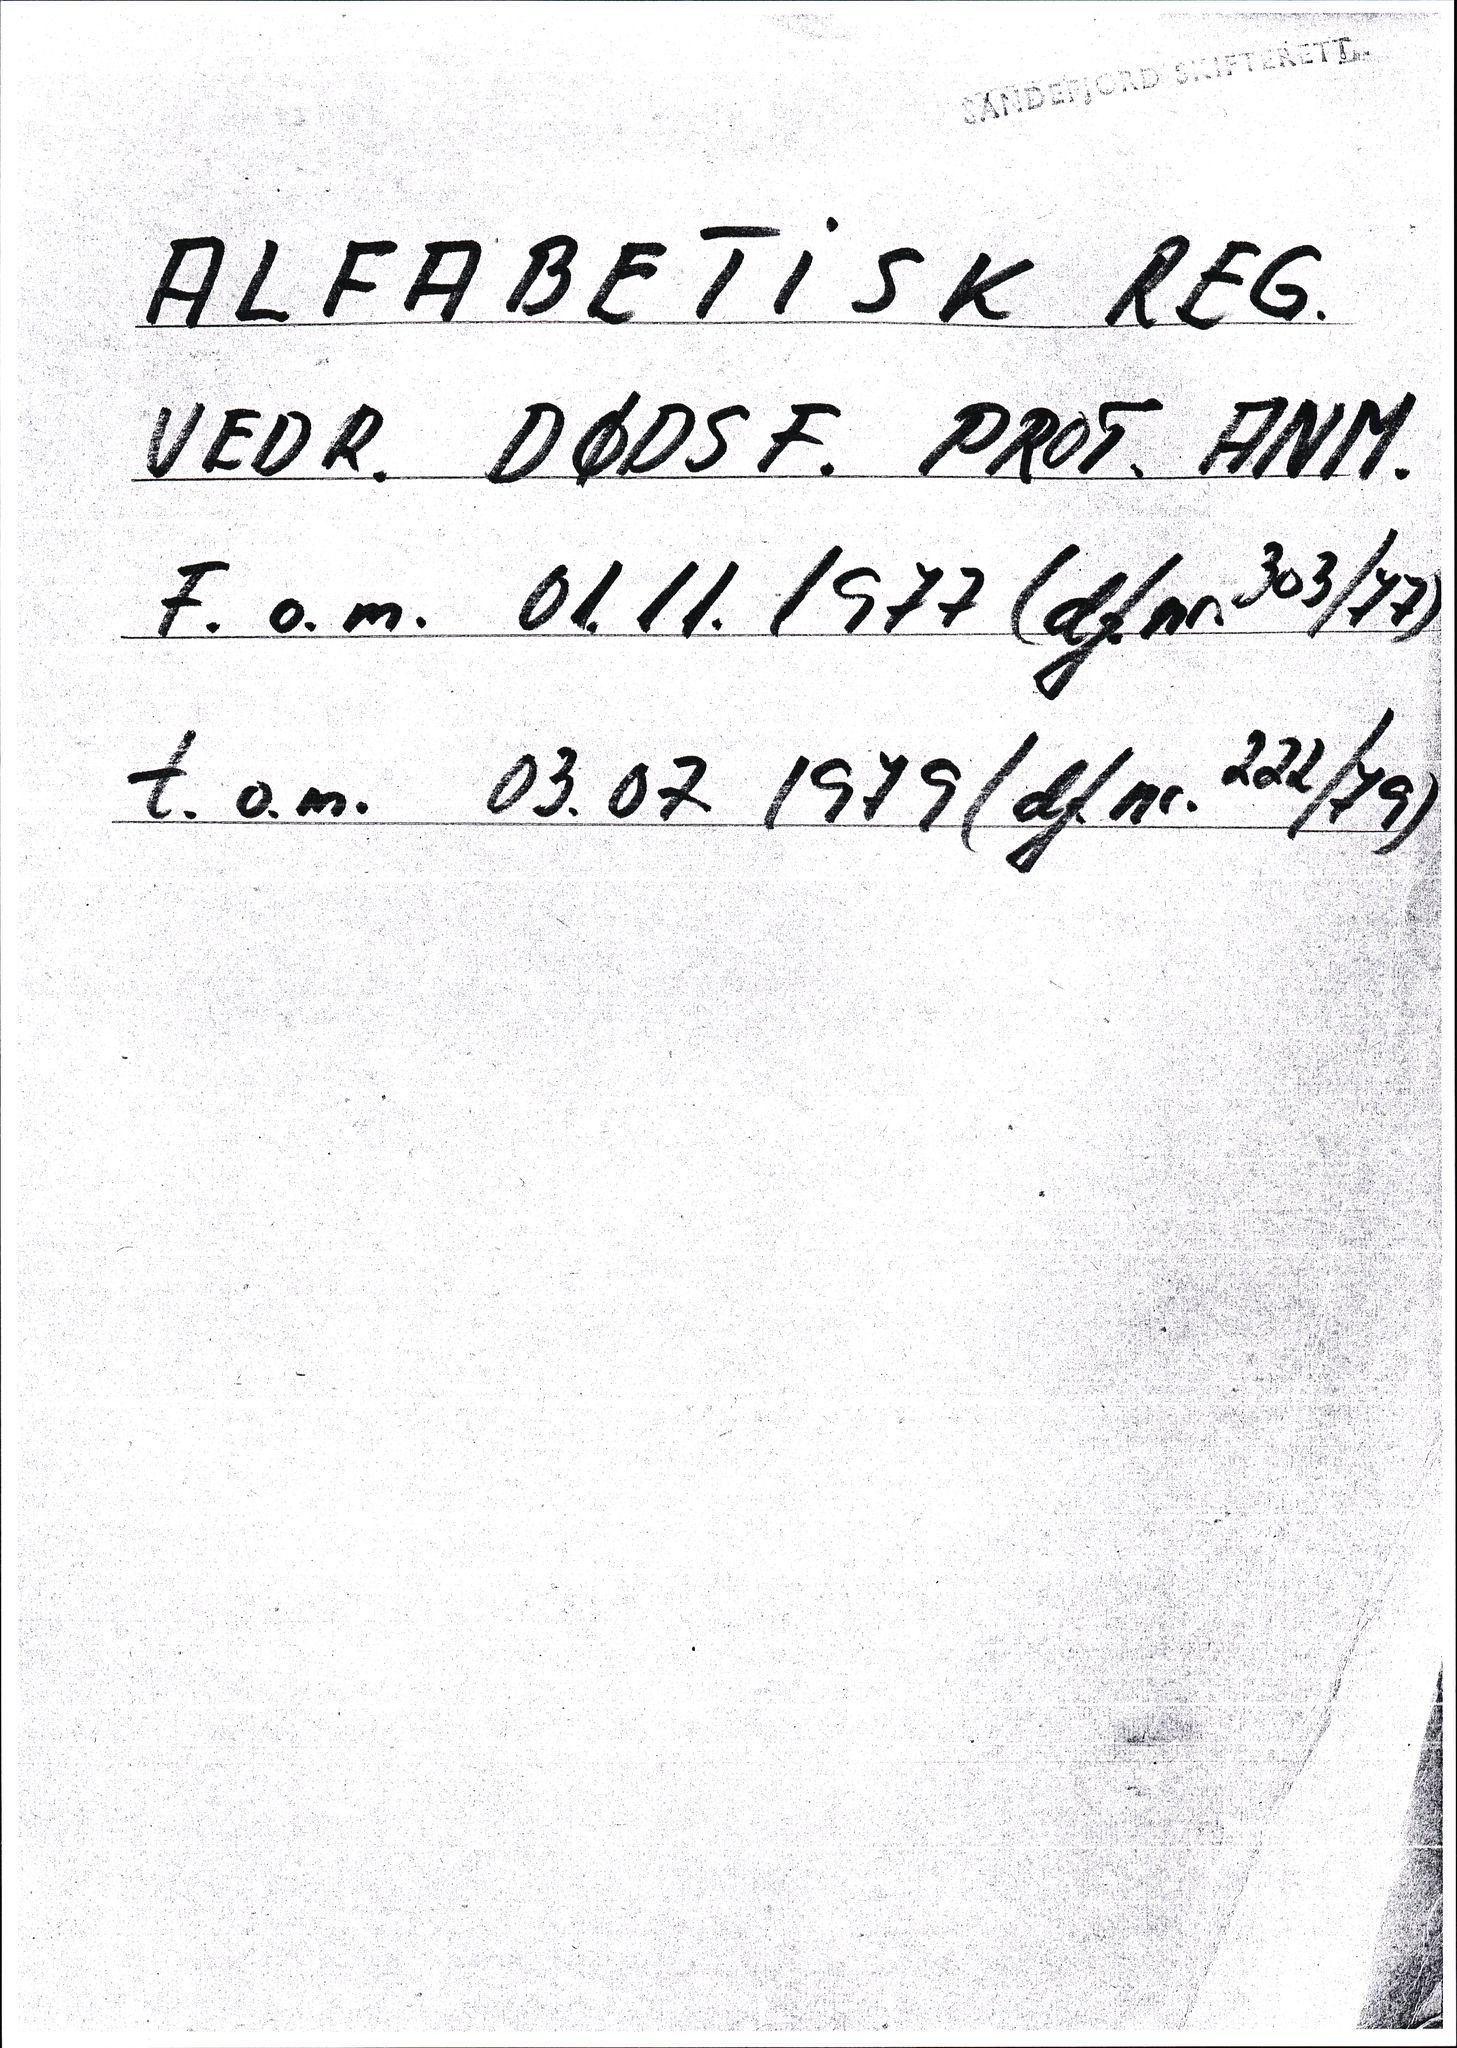 SANDEFJORD SKIFTERETT
ALFABETISK REG.
VEDR. DØDSF. PROT. ANM.
F. o. m. 01.11. 1977 (df.nr. 303/77)
t. o. m. 03.07 1979 (df.nr. 222/79)